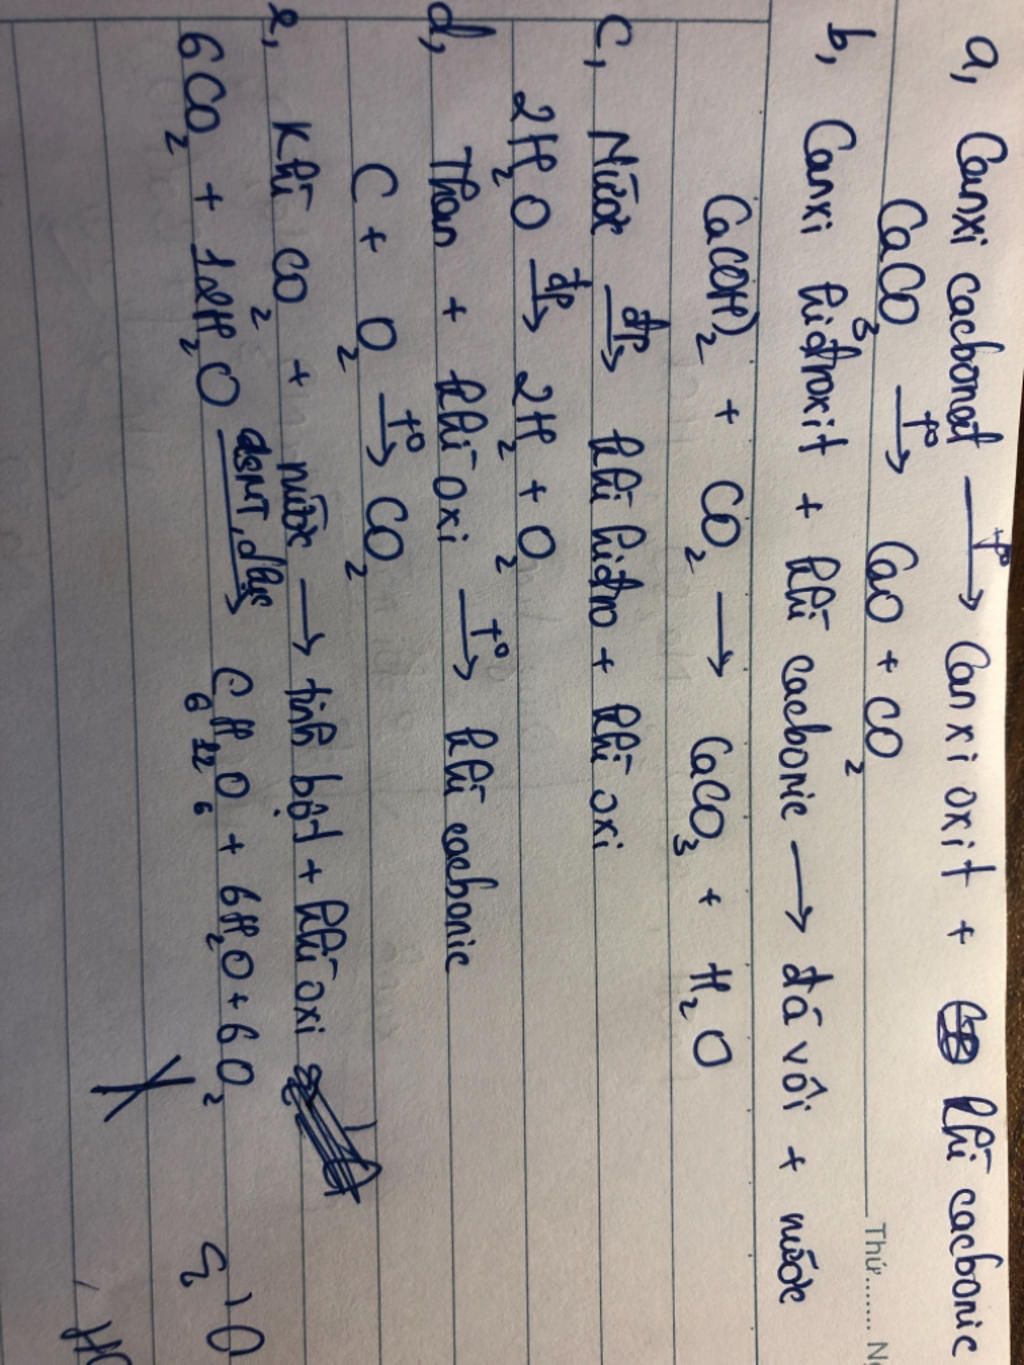 a, Canxi cacbonat →t° Canxi oxit + khí cacbonic
CaCO3 →t° CaO + CO2
Thứ........
b, Canxi hiđroxit + khí cacbonic → đá vôi + nước
Ca(OH)2 + CO2 → CaCO3 + H2O
c, Nước →đp khí hiđro + khí oxi
2H2O →đp 2H2 + O2
d, Than + khí oxi →t° khí cacbonic
C + O2 →t° CO2
e, Khí CO2 + nước → tinh bột + khí oxi
6CO2 + 12H2O →asMT, dlục C6H12O6 + 6H2O + 6O2